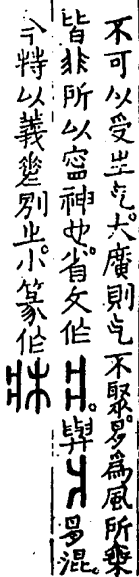 不可以受生气大廣則气不聚易為風所乘
皆非所以寍神也省文作與易混
今特以義別之小篆作